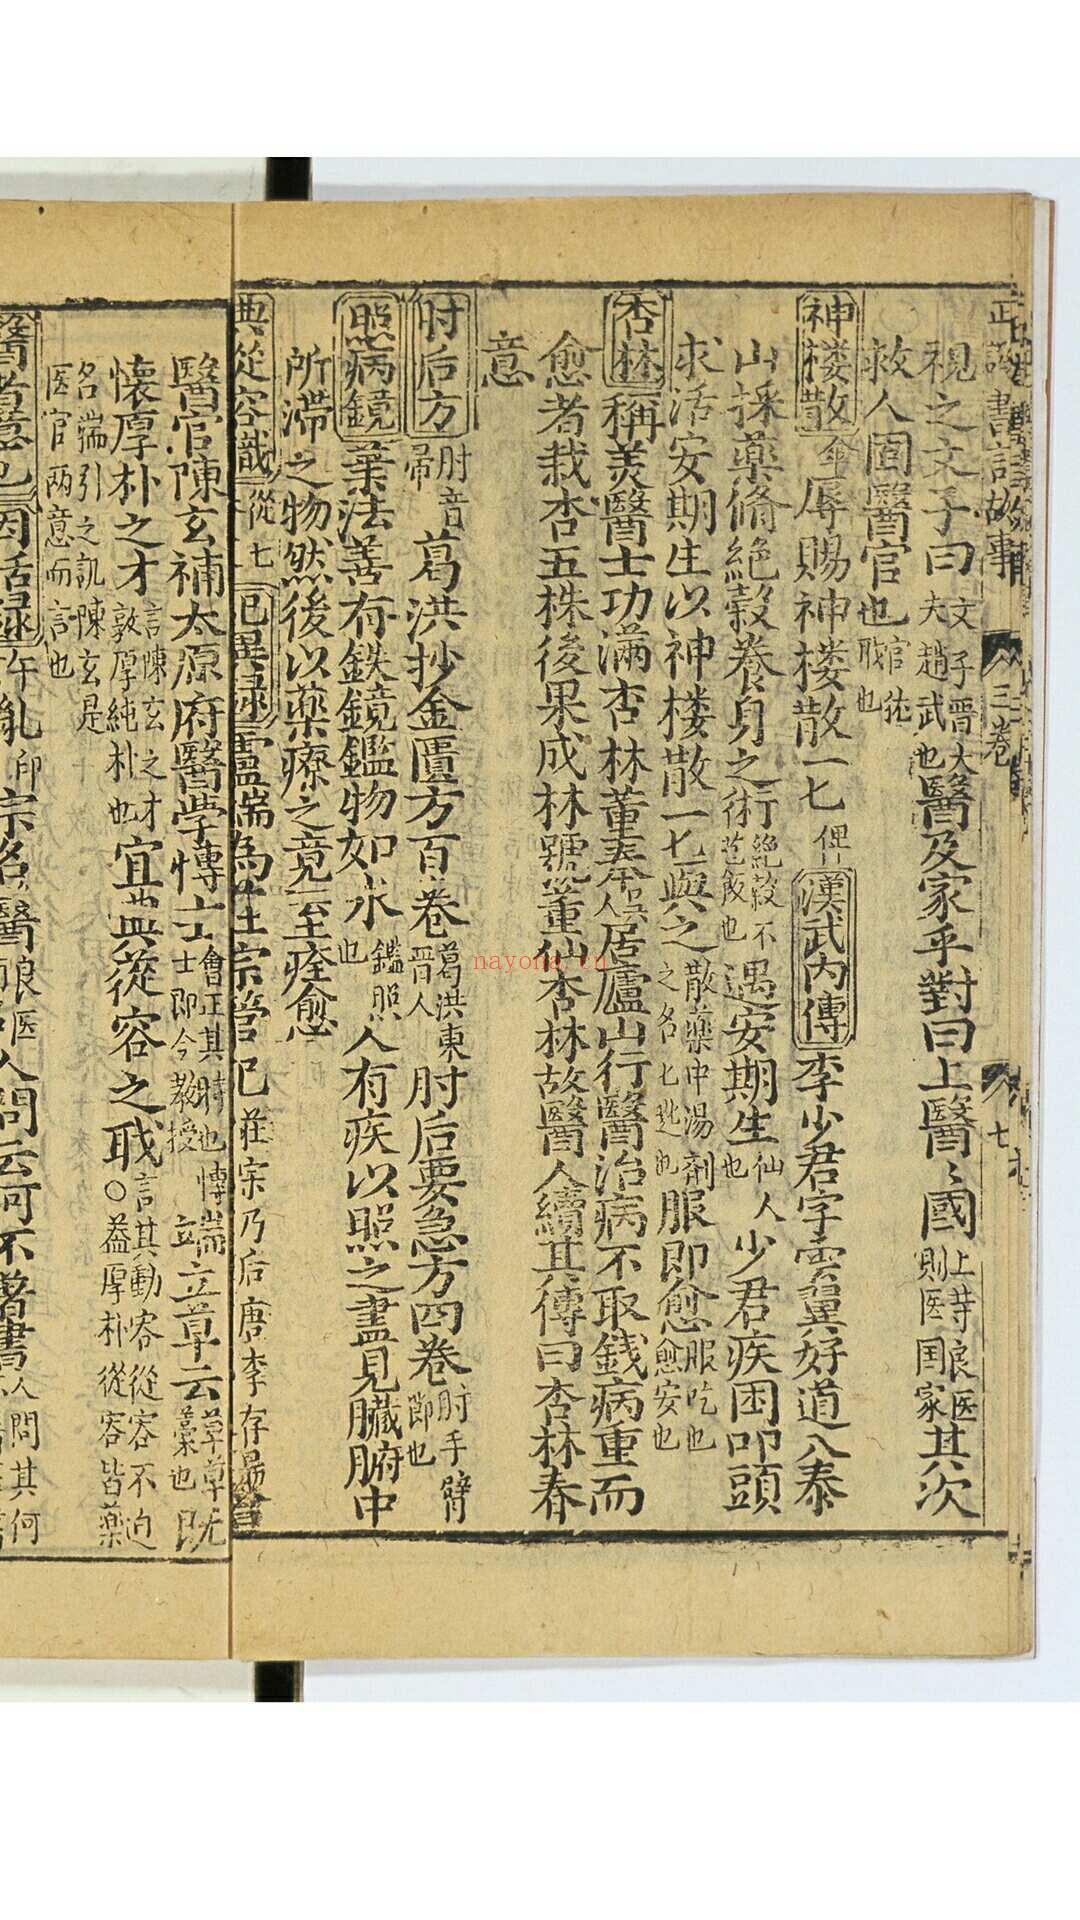 書言故事 三卷
視之文子曰文子晋大夫趙武也醫及家乎對曰上醫〻國上等良医則医国家其次
救人固醫官也官猶職也
神楼散 辱賜神楼散一匕 漢武内傳 李少君字雲翼好道入泰
山採藥脩絶穀養身之術絶穀不茞飯也遇安期生仙人也少君疾困叩頭
求活安期生以神楼散一匕與之散藥中湯剤之名匕匙也服即愈服吃也愈安也
杏林 稱羙醫士功滿杏林董奉居廬山行醫治病不取銭病重而
愈者栽杏五株後果成林號董仙杏林故醫人續其傳曰杏林春
意
肘后方 肘音帚 葛洪抄金匱方百卷葛洪東晋人肘后要急方四卷肘手臂節也
照病鏡 葉法善有鉄鏡鑑物如水鑑照也人有疾以照之盡見臟腑中
所滞之物然後以藥療之竟至痊愈
典從容職 從七 記異録 盧端為莊宗管记莊宗乃后唐李存勗
醫官陳玄補太原府醫学博士會正其時也博士即今教授端立草云草草藁也既
懷厚朴之才言陳玄之才敦厚純朴也宜典從容之职言其動容從容不迫○盖厚朴從容皆藥
名端引之訊陳玄是医官两意而言也
醫者意也 胤印宗名醫良医人問云何不著書人問其何